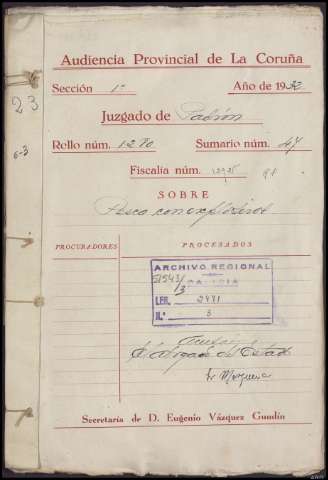 Audiencia Provincial de La Coruña
Sección 1ª Año de 1933
23
Juzgado de Padrón
Rollo núm. 1270 Sumario núm. 47
6-3
Fiscalía núm.
SOBRE
Pesca con explosivos
PROCURADORES PROCESADOS
ARCHIVO REGIONAL
GALICIA
51543/
13
LEG.
Nº 3
Abogado del Estado
Sr
Secretaría de D. Eugenio Vázquez Gundín